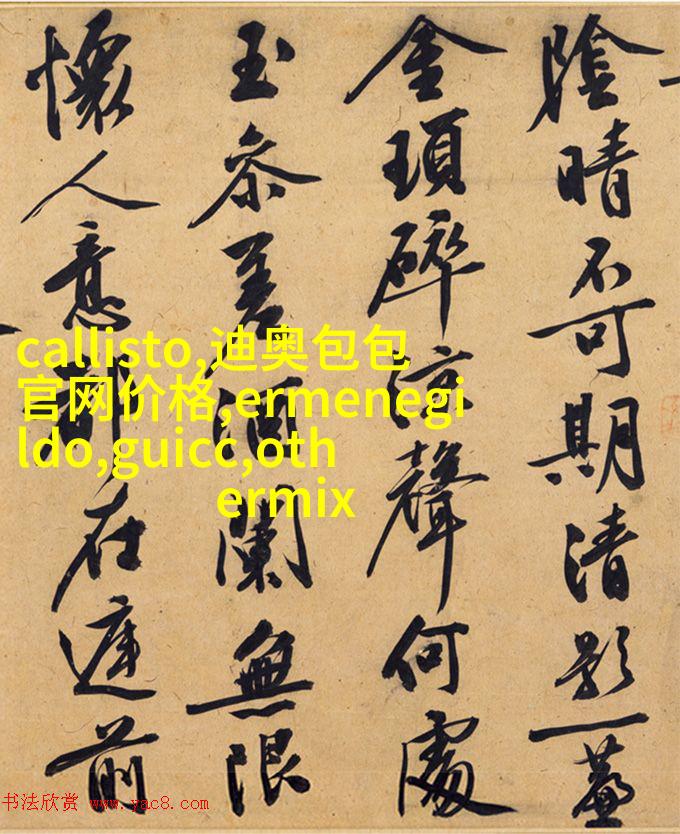 陰晴不可期清影一簾
金瑣碎涼聲何處
玉參差酒闌無限
懷人意都在庭前
callisto,迪奥包包
官网价格,ermenegi
ldo,guicc,oth
ermix
书法欣赏 www.yac8.com